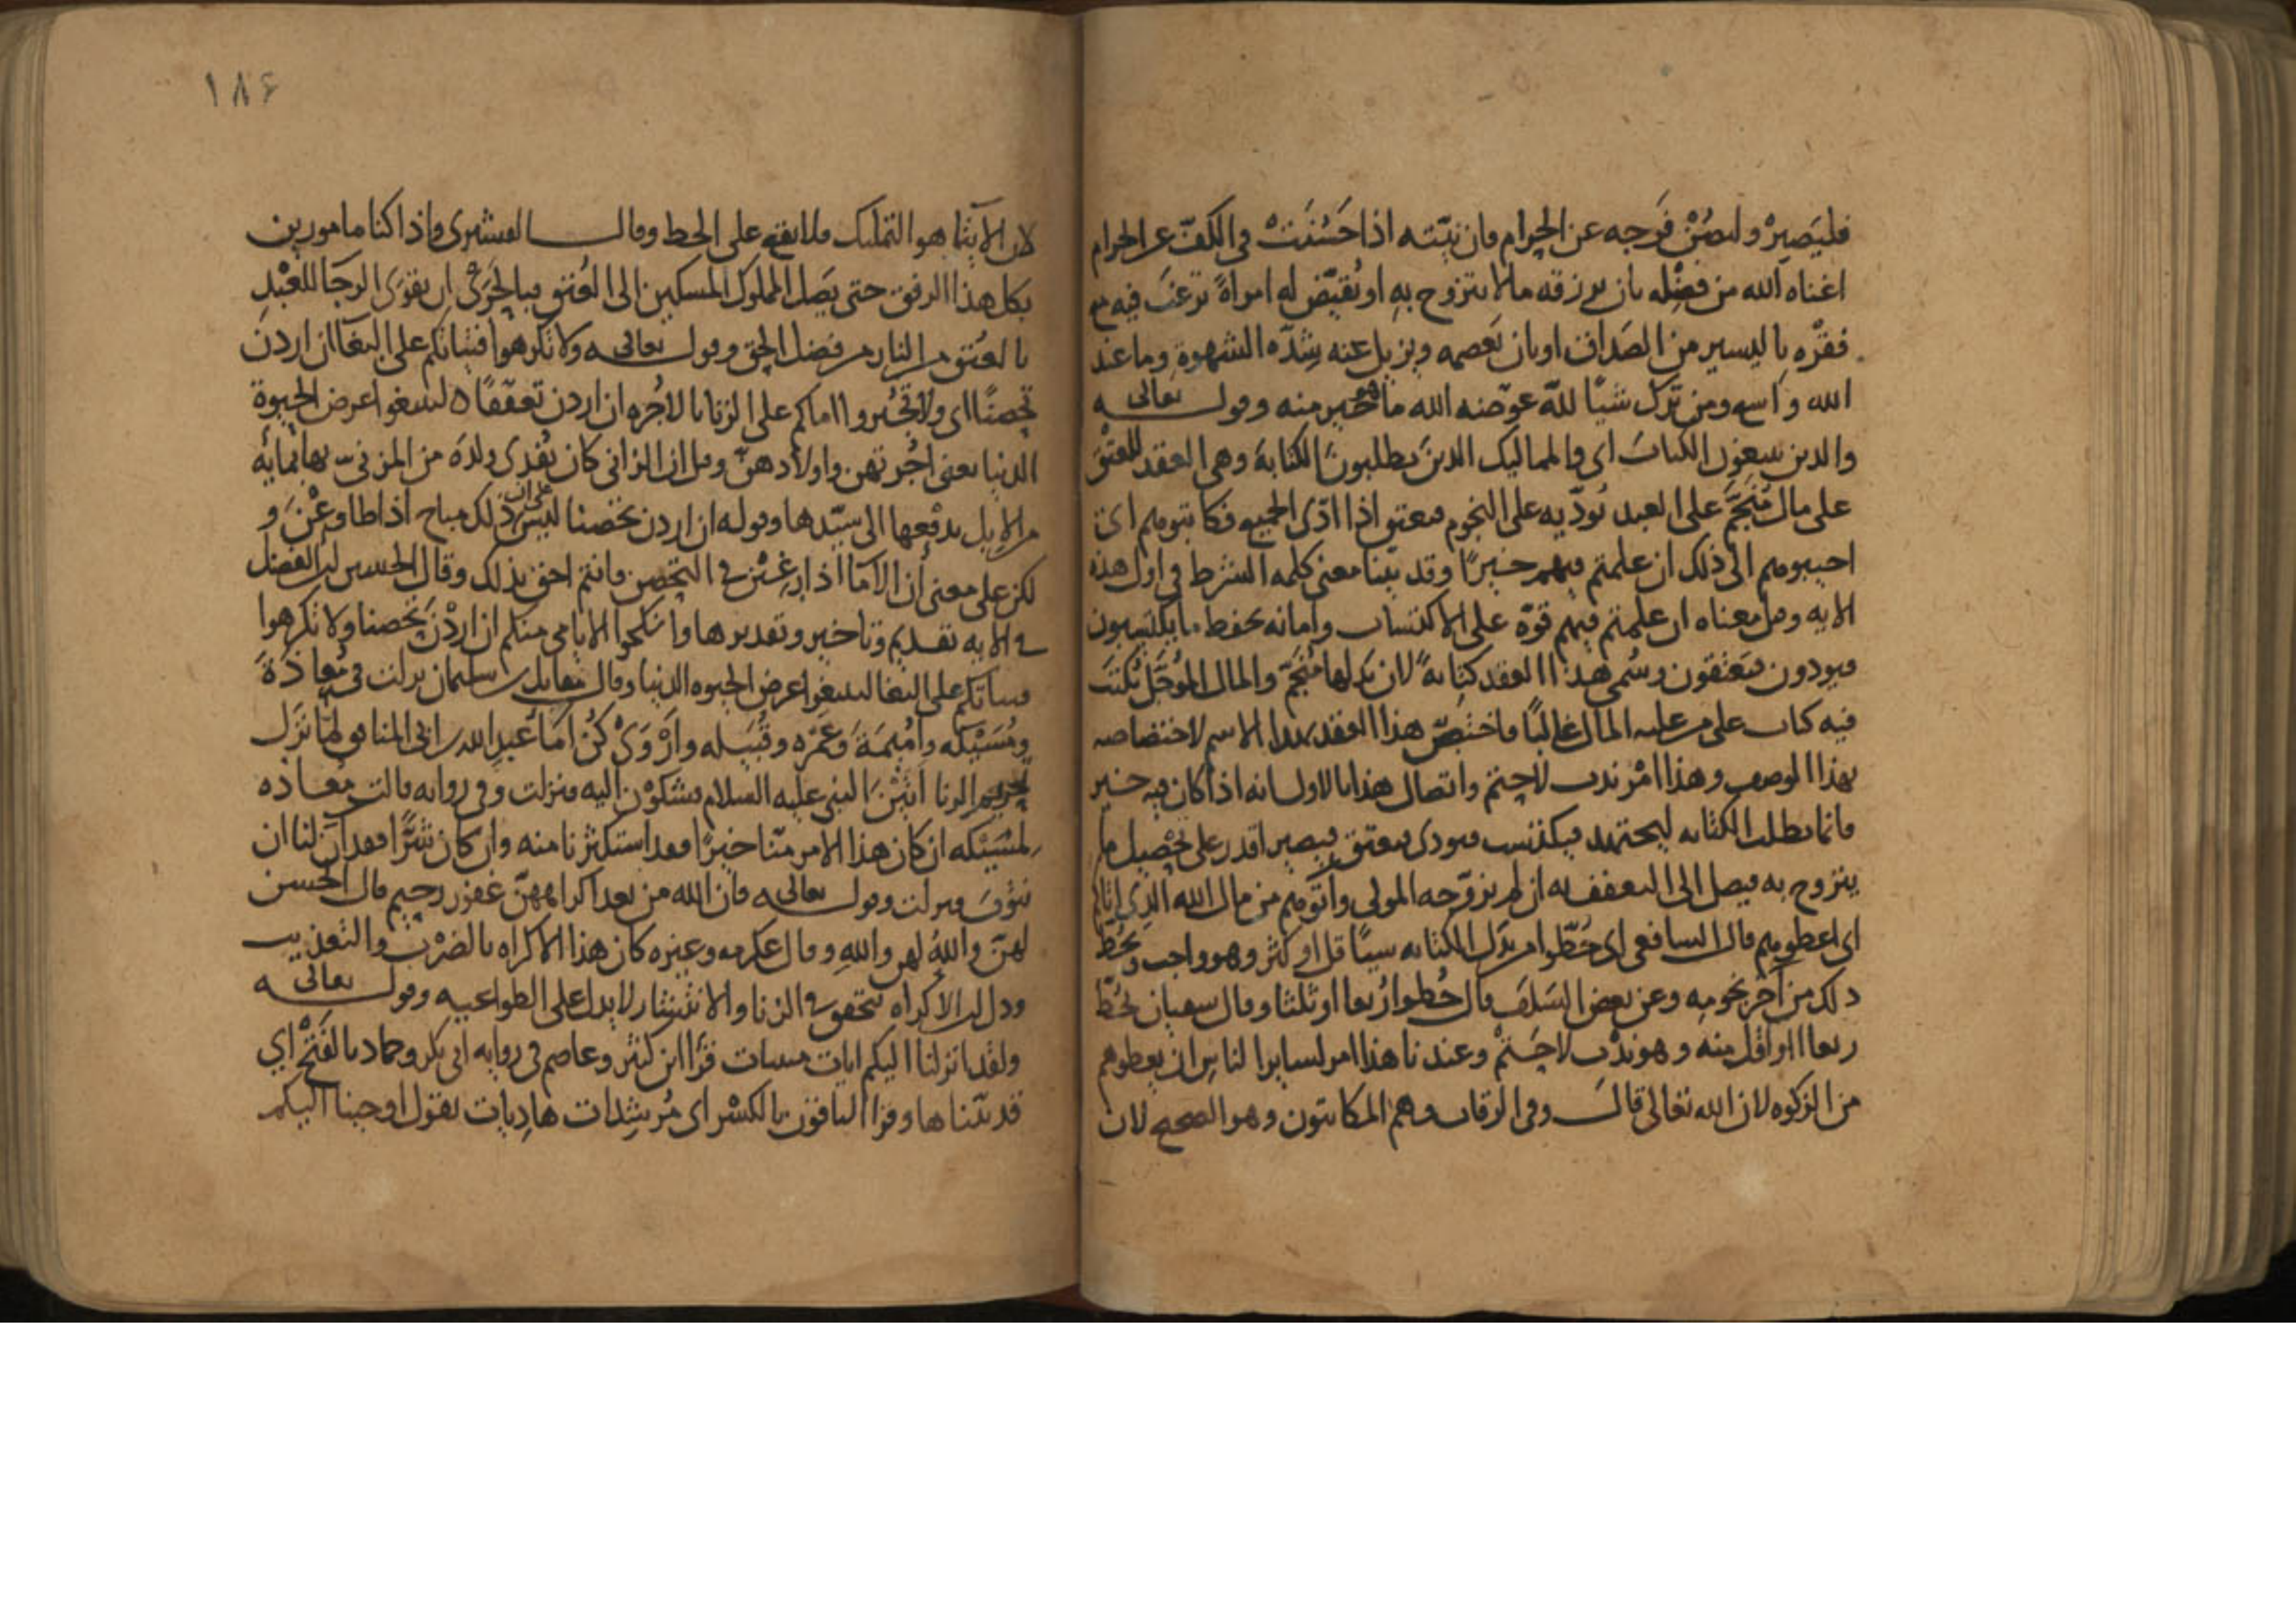 فليَصبِرْ وليصُنْ فَرجه عن الحرام فان نيّته اذا حَسُنَتْ في الكفّ عن الحرام
اغناه الله من فضْله بان يرزقه مالا يتزوج به او يُقيّض له امراةً ترغبُ فيه مع
فقْره باليسير من الصَداق او بان يَعصمه ويزيل عنه شِدّه الشهوة وما عند
الله واسع ومن ترك شيًا للّه عوّضنه الله ما هو خير منه وقوله تعالى
والذين يبتغون الكتابَ اى والمماليك الذين يطلبون الكتابة وهى العقد للعتق
على مال مُنَجَّم على العبد يُودّيه على النجوم فيعتق اذا ادّى الجميع فكاتبوهم اى
اجيبوهم الى ذلك ان علمتم فيهم خيرًا وقد بيّنا معنى كلمه الشرط في اول هذه
الايه وقيل معناه ان علمتم فيهم قوّه على الاكتساب وامانه بحفظ ما يكتسبون
فيودون فيَعتقون وسُمى هذا العقد كتابةً لان بَدلها مُنجَّم والمال المُوجَّل يُكتب
فيه كتاب على من عليه المال غالبًا فاختصّ هذا العقد بهذا الاسم لاختصاصه
بهذا الوصف وهذا امْر ندب لا حتم واتصال هذا بالاول انه اذا كان فيه خير
فانما يطلب الكتابه ليجتهد فيكتسب فيودى فيعتق فيصير اقدر على تحْصيل ما
يتزوج به فيصل الى التعفف به ان لم يزوّجه المولى وآتوهم من مال الله الذى اتاكم
اى اعطوهم قال الشافعى اى حُطّوا من بدل الكتابه شيئًا قل او كثر وهو واجب ويُحَطّ
ذلك من آخر نجومه وعن بعض السَلفَ قال حُطوا رُبعا او ثلثا وقال سفيان يحُطّ
ربعا او اقل منه وهو ندْب لا حَتمْ وعندنا هذا امر لساير الناس ان يعطوهم
من الزكوه لان الله تعالى قال وفى الرقاب وهم المكاتبون وهو الصحيح لان
١٨٤
لان الايتا هو التمليك فلا يقع على الحط وقال القشيرى واذا كنا مامورين
بكل هذا الرفق حتى يَصل المملوك المسكين الى العُتق فبالحَرىّ ان يقوَى الرجَا للعَبْد
بالعتق من النار من فضل الحق وقوله تعالى ولا تكرهوا فتياتكم على البغا ان اردن
تحصنًا اى ولا تُجبروا اماكم على الزنا بالاجُره ان اردن تعفّفًا لتبتغوا عرض الحيوة
الدنيا يعنى اُجُرتهن واولادهنّ وقيل ان الزانى كان يُفدى ولدَه من المزنىّ بها بمايَه
من الابل يدفْعها الى سيّدها وقوله ان اردن تحصنا ليس على ان ذلك مباح اذا طاوعْنَ و
لكن على معنى أن الامَا اذا رغِبْن في التحصن فانتم احق بذلك وقال الحسين بن الفضل
في الايه تقديم وتاخير وتقديرها وانكحوا الايامى منكم ان اردْنَ تحصنا ولا تكرهوا
فتياتكم على البغا لتبتغوا عرض الحيوه الدنيا وقال مقاتل بن سليمان نزلت في مُعاذةَ
ومُسَيْكه وامُيمَةَ وعَمْره وقُتَيله وارْوَىْ كُنّ اماَ عَبد الله بن ابى المنافق لمّا نزل
تحريم الزنا اتيْنَ النبى عليه السلام يشكوْن اليه فنزلت وفى روايه قالت مُعاذه
لمُسَيْكه ان كان هذا الامر منّا خيرًا فقد استكثرنا منه وان كان شَرًّا فقد آن لنا ان
نتوبَ فنزلت وقوله تعالى فان الله من بعد اكراههنّ غفور رحيم قال الحسن
لهنّ واللّهِ لهن واللّهِ وقال عكرمه وغيره كان هذا الاكراه بالضرْب والتعذيب
ودل ان الاكراه يتحقق في الزنا والانتشار لا يدل على الطواعيه وقوله تعالى
ولقد انزلنا اليكم ايات مبينات قرَا ابن كثير وعاصم في روايه ابى بكر وحماد بالفَتْح اي
قد بيّنّاها وقرا الباقون بالكسْر اى مُرشِدات هادِيات يقول اوحينا اليكم